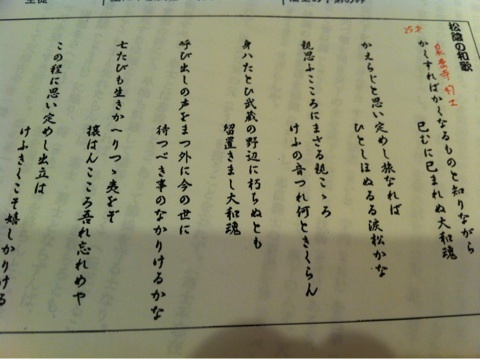 松陰の和歌
かくすればかくなるものと知りながら
已むに已まれぬ大和魂
かえらじと思い定めし旅なれば
ひとしほぬるる涙松かな
親思ふこころにまさる親こゝろ
けふの音つれ何ときくらん
身ハたとひ武蔵の野辺に朽ちぬとも
留置きまし大和魂
呼び出しの声をまつ外に今の世に
待つべき事のなかりけるかな
七たびも生きかへりつゝ夷をぞ
攘はんこころ吾れ忘れめや
この程に思い定めし出立は
けふきくこそ嬉しかりける